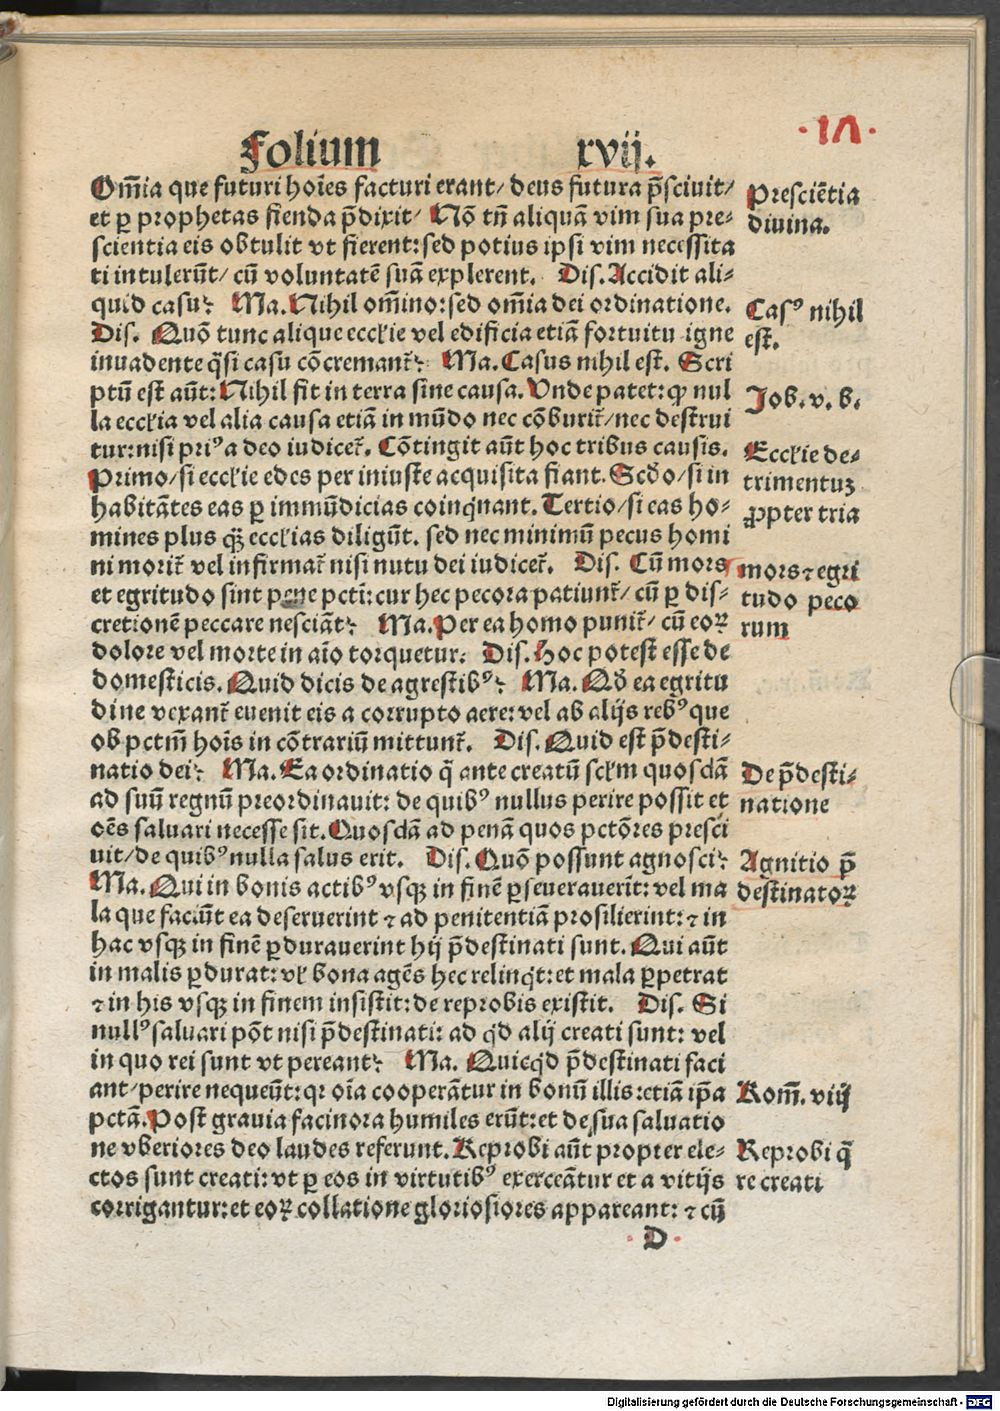 ·17·
Folium xvij.
Om̄ia que futuri hoīes facturi erant/ deus futura p̄sciuit/
et ꝑ prophetas fienda p̄dixit/ Nō tn̄ aliquā vim sua pre-
scientia eis obtulit vt fierent: sed potius ipsi vim necessita
ti intulerūt/ cū voluntatē suā explerent. Dis. Accidit ali-
quid casu? Ma. Nihil om̄ino: sed om̄ia dei ordinatione.
Dis. Quō tunc alique eccl'ie vel edificia etiā fortuitu igne
inuadente q̄si casu cōcremant᷑? Ma. Casus nihil est. Scri
ptū est aūt: Nihil fit in terra sine causa. Vnde patet: ꝙ nul
la eccl'ia vel alia causa etiā in mūdo nec cōburit᷑/ nec destrui
tur: nisi priꝰ a deo iudicet᷑. Cōtingit aūt hoc tribus causis.
Primo/ si eccl'ie edes per iniuste acquisita fiant. Scd̄o/ si in
habitātes eas ꝑ immūdicias coinq̇nant. Tertio/ si eas ho-
mines plus qꝫ̄ eccl'ias diligūt. sed nec minimū pecus homi
ni morit᷑ vel infirmat᷑ nisi nutu dei iudicet᷑. Dis. Cū mors
et egritudo sint pene pcti: cur hec pecora patiunt᷑/ cū ꝑ dis-
cretionē peccare nesciāt? Ma. Per ea homo punit᷑/ cū eoꝝ
dolore vel morte in aīo torquetur. Dis. Hoc potest esse de
domesticis. Quid dicis de agrestibꝰ? Ma. Qd̄ ea egritu
dine vexant᷑ euenit eis a corrupto aere: vel ab alijs rebꝰ que
ob pctm̄ hoīs in cōtrariū mittunt᷑. Dis. Quid est p̄desti-
natio dei? Ma. Ea ordinatio q̄ ante creatū scl'm quosdā
ad suū regnū preordinauit: de quibꝰ nullus perire possit et
oēs saluari necesse sit. Quosdā ad penā quos pctōres presci
uit/ de quibꝰ nulla salus erit. Dis. Quō possunt agnosci?
Ma. Qui in bonis actibꝰ vsqꝫ in finē ꝑseuerauerīt: vel ma
la que faciūt ea deseruerint ⁊ ad penitentiā prosilierint: ⁊ in
hac vsqꝫ in finē ꝑdurauerint hij p̄destinati sunt. Qui aūt
in malis ꝑdurat: vl' bona agēs hec relinq̇t: et mala ꝑpetrat
⁊ in his vsqꝫ in finem insistit: de reprobis existit. Dis. Si
nullꝰ saluari pōt nisi p̄destinati: ad qd̓ alij creati sunt: vel
in quo rei sunt vt pereant? Ma. Quicqd̓ p̄destinati faci
ant/ perire nequeūt: qꝛ oīa cooperātur in bonū illis: etiā ip̄a
pctā. Post grauia facinora humiles erūt: et de sua saluatio
ne vberiores deo laudes referunt. Reprobi aūt propter ele-
ctos sunt creati: vt ꝑ eos in virtutibꝰ exerceātur et a vitijs
corrigantur: et eoꝝ collatione gloriosiores appareant: ⁊ cū
D
Presciētia
diuina.
Casꝰ nihil
est.
Job. v. b.
Eccl'ie de-
trimentuꝫ
ꝓpter tria
mors ⁊ egri
tudo peco
rum
De p̄desti-
natione
Agnitio p̄
destinatoꝝ
Rom̄. viij
Reprobi q̄
re creati
Digitalisierung gefördert durch die Deutsche Forschungsgemeinschaft - DFG